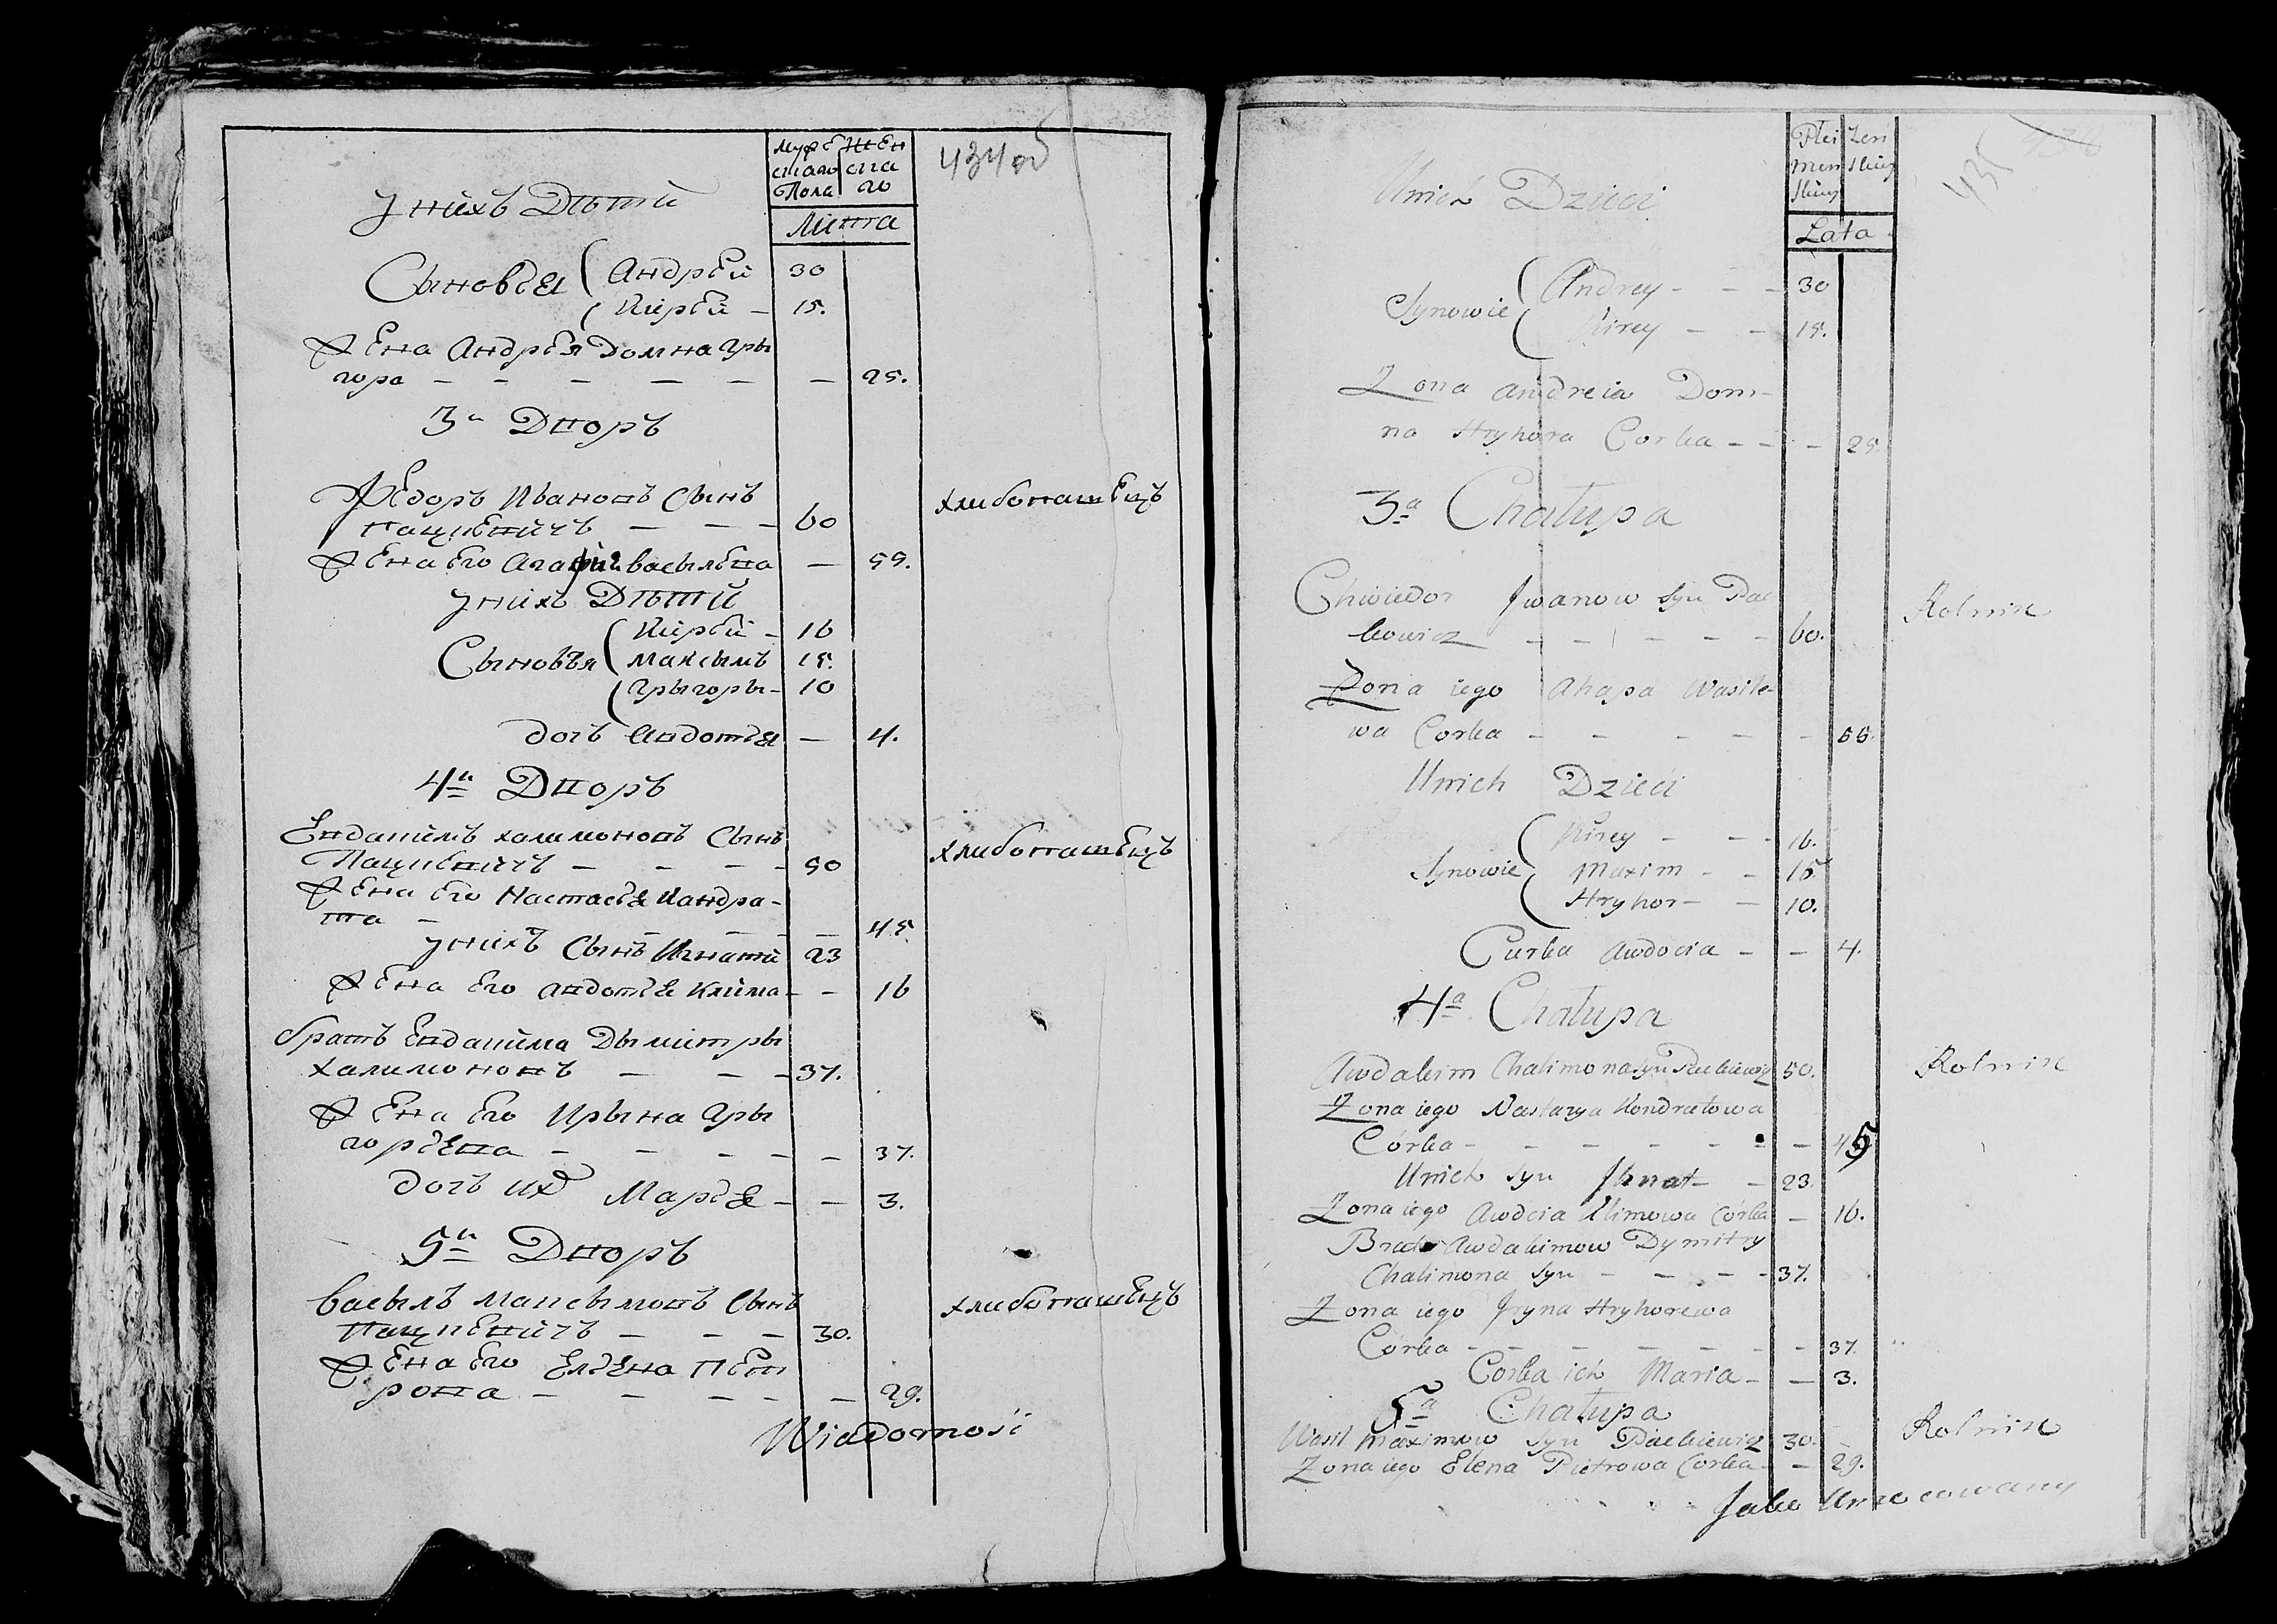 434 об
Мужескаго Пола
Женскаго
Лѣта
У нихъ Дѣтй
Сыновья Андрей 30
Кирей — 15.
Жена Андрея Домна Гры
гора — — — — — — 25.
3й Дворъ
Федоръ Ивановъ Сынъ
Пацкевичъ — — — 60 хлибопашецъ
Жена Его Агафия василева — 55.
У нихъ Дѣтй
Кирей — 16
Сыновъя Максымъ 15.
Грыгоры — 10
дочъ Авдотья — 4.
4й Дворъ
Евдакимъ халимоновъ Сынъ
Пацкевичъ — — — — 50 хлибопашецъ
Жена Его Настасья Кандра-
та — — — — — 45.
У нихъ Сынъ Игнатй 23
Жена Его Авдотья Клима — — 16
братъ Евдакима Дымитры
Халимоновъ — — — 37.
Жена Его Ирына Гры
горьева — — — — — — 37.
дочъ их Марья — — 3.
5й Дворъ
василъ Максымовъ Сынъ
Пацкевичъ — — — 30. хлибопашецъ
Жена Его Елена Пет
рова — — — — — 29.
Wiadomość
435
Płci Męnskiey
Żenskiey
Lata
Unich Dzieci
Andrey — — — 30
Synowie
Kirey — — 15.
Zona Andreia Dom-
na Hryhora Corka — — — 25.
3a Chałupa
Chwiedor Jwanow Syn Pac
kowicz — — — — — 60. Rolnik
Zona iego Ahapa Wasile-
wa Corka — — — — — 55.
Unich Dzieci
Kirey — — — 16.
Synowie Maxim — — 15
Hryhor — — 10.
Curka Awdocia — — 4.
4a Chałupa
Awdakim Chalimona Syn Packiewicz 50. Rolnik
Zona iego Nastazya Kondratowa
Córka — — — — — — — 45
Unich Syn Jhnat — — 23.
Zona iego Awdcia Klimowa Córka — 16.
Brat Awdakimow Dymitry
Chalimona Syn — — — — 37.
Zona iego Jryna Hryhorewa
Córka — — — — — — — 37.
Corka ich Maria — — 3.
5a Chałupa
Wasil Maximow Syn Packiewicz 30. Rolnik
Zona iego Elena Pietrowa Corka — — 29.
Jako